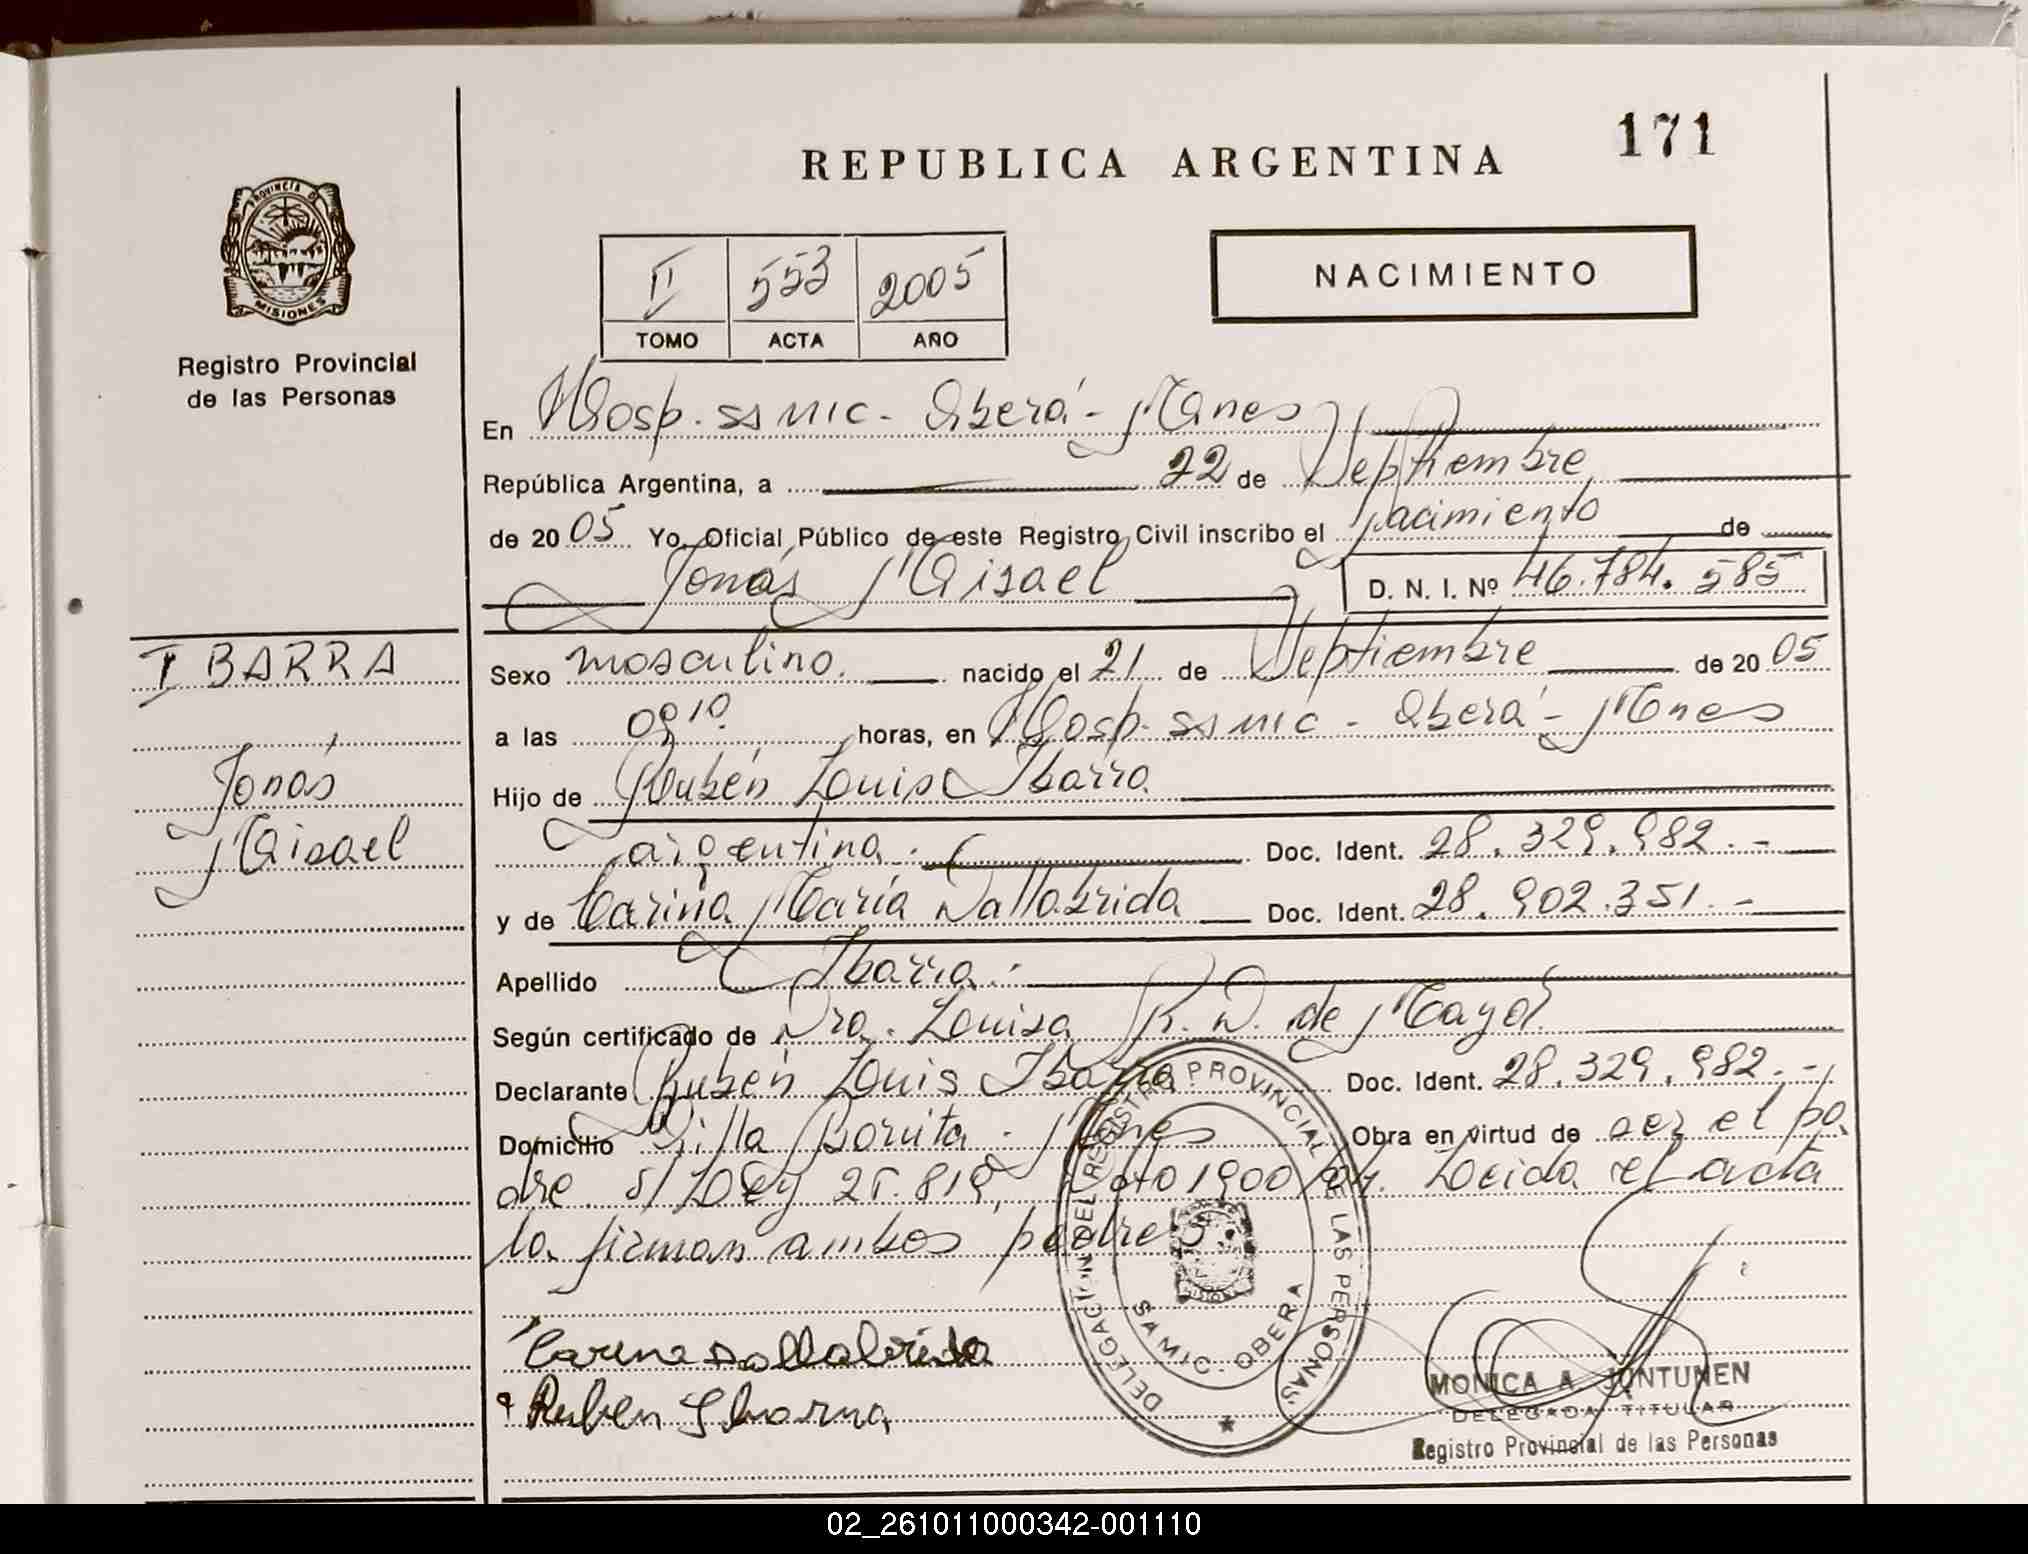 171
REPUBLICA ARGENTINA
PROVINCIA DE
MISIONES
Registro Provincial
de las Personas
II 553 2005
TOMO ACTA AÑO
NACIMIENTO
En Hosp. ssmic - Oberá - Mnes
República Argentina, a 22 de Septiembre
de 2005 Yo, Oficial Público de este Registro Civil inscribo el nacimiento de
Jonás Misael D. N. I. Nº 46.784.585
IBARRA
Jonás
Misael
Sexo masculino. nacido el 21 de Septiembre de 2005
a las 09 10. horas, en Hosp. ssmic - Oberá - Mnes
Hijo de Rubén Louis Ibarra
argentina. Doc. Ident. 28.329.982.-
y de Carina María Dallabrida Doc. Ident. 28.902.351.-
Apellido Ibarra.
Según certificado de Dra. Louisa R. D. de Mayol
Declarante Rubén Louis Ibarra Doc. Ident. 28.329.982.-
Domicilio Villa Bonita - Mnes Obra en virtud de ser el pa
dre. s/ Ley 25.819, Dto 1900/04. Leida el acta
la firman ambos padres.
Carina Dallabrida
Ruben Ibarra
DELEGACION DEL REGISTRO PROVINCIAL DE LAS PERSONAS
SAMIC - OBERA
MONICA A. JUNTUNEN
DELEGADA TITULAR
Registro Provincial de las Personas
02_261011000342-001110